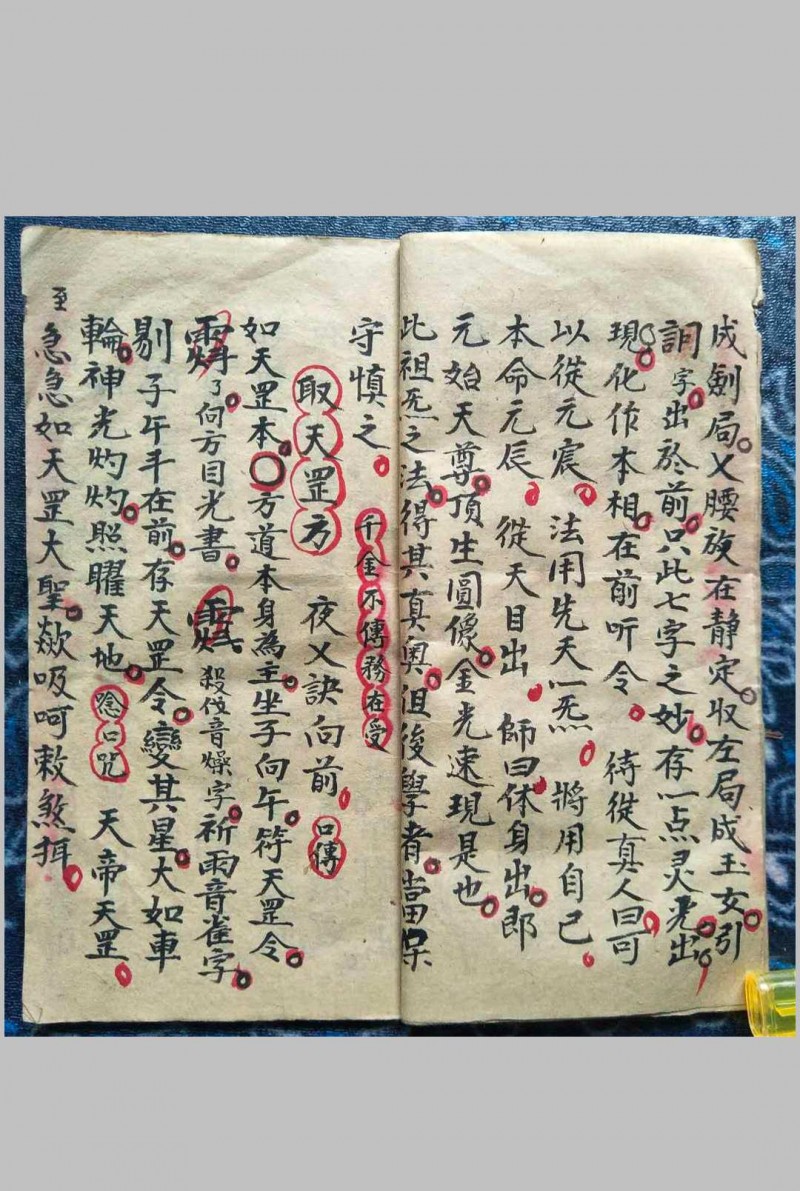 成劍局乂腰放在静定収左局成玉女引
詞字出於前只此七字之妙存一点灵光出
現化作本相在前听令 待從真人曰可
以從元宸 法用先天一炁 將用自己
本命元辰 從天目出 師曰体身出郎
元始天尊頂生圓像金光速現是也
此祖炁之法得其真奥俎後學者當保
守慎之 千金不傳務在受
取天罡方 夜乂訣向前 口傳
如天罡本〇方道本身為主坐子向午符天罡令
了向方目光書 殺伐音燥字祈雨音雀字
剔子午手在前存天罡令變其星大如車
輪神光灼灼照曜天地 念口咒 天帝天罡
至
急急如天罡大聖歘吸呵敕煞挕